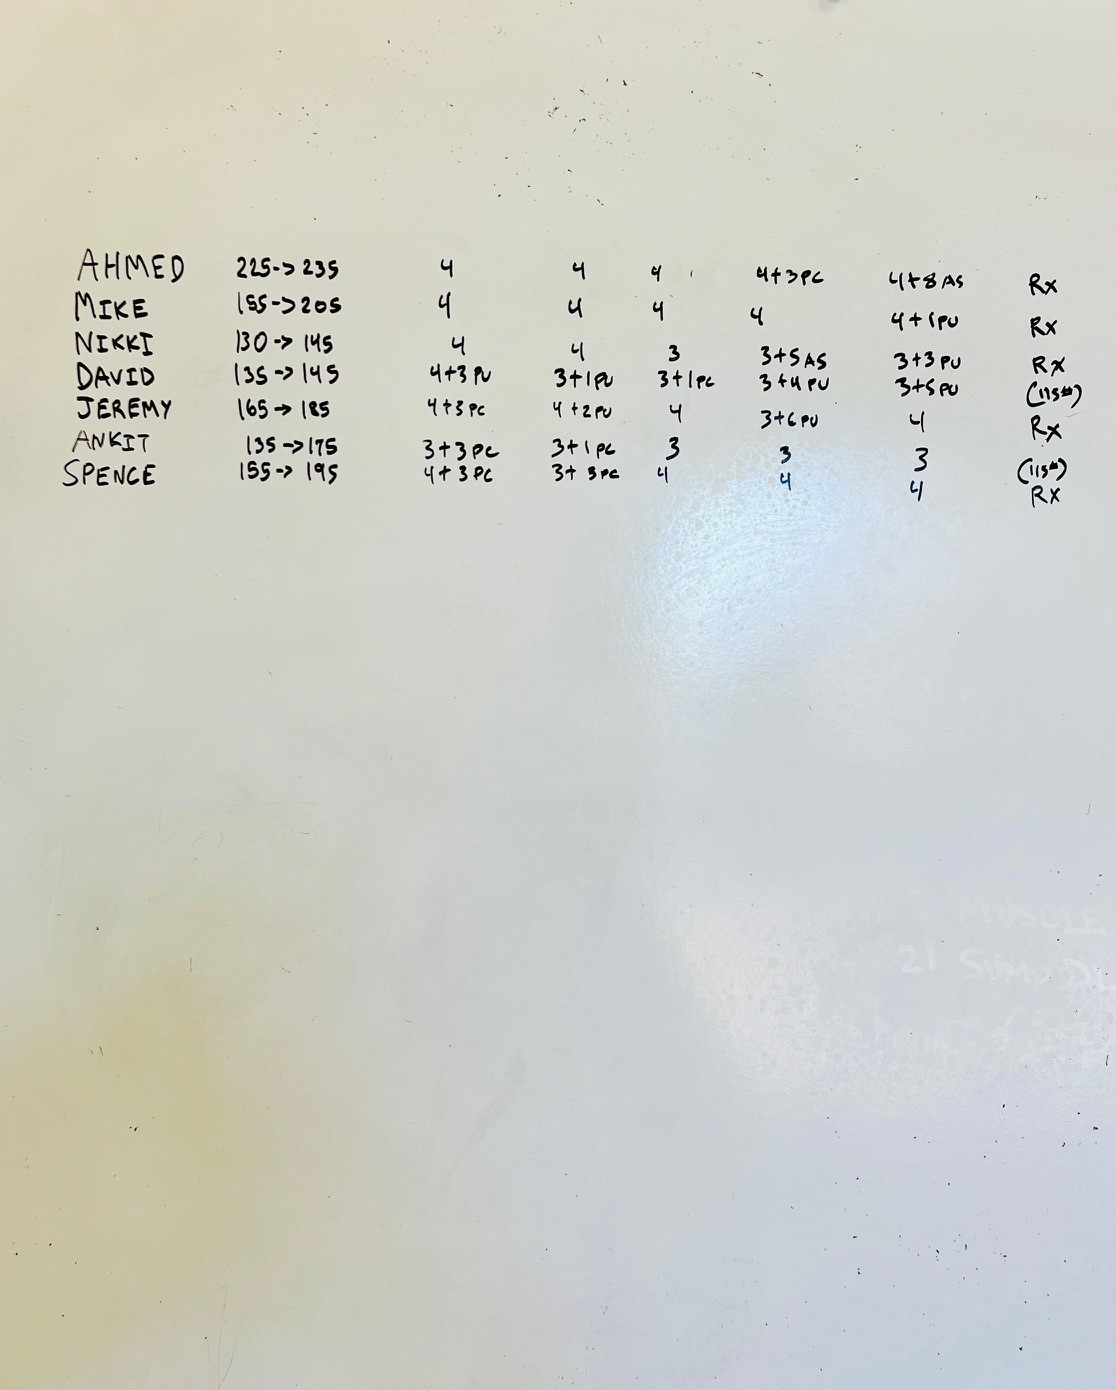 AHMED 225->235 4 4 4 4+3PC 4+8AS Rx
MIKE 155->205 4 4 4 4 4+1PU Rx
NIKKI 130->145 4 4 3 3+5AS 3+3PU Rx
DAVID 135->145 4+3PU 3+1PU 3+1PC 3+4PU 3+5PU (115#)
JEREMY 165->185 4+3PC 4+2PU 4 3+6PU 4 Rx
ANKIT 135->175 3+3PC 3+1PC 3 3 3 (115#)
SPENCE 155->195 4+3PC 3+3PC 4 4 4 RX
21 SUMO DL